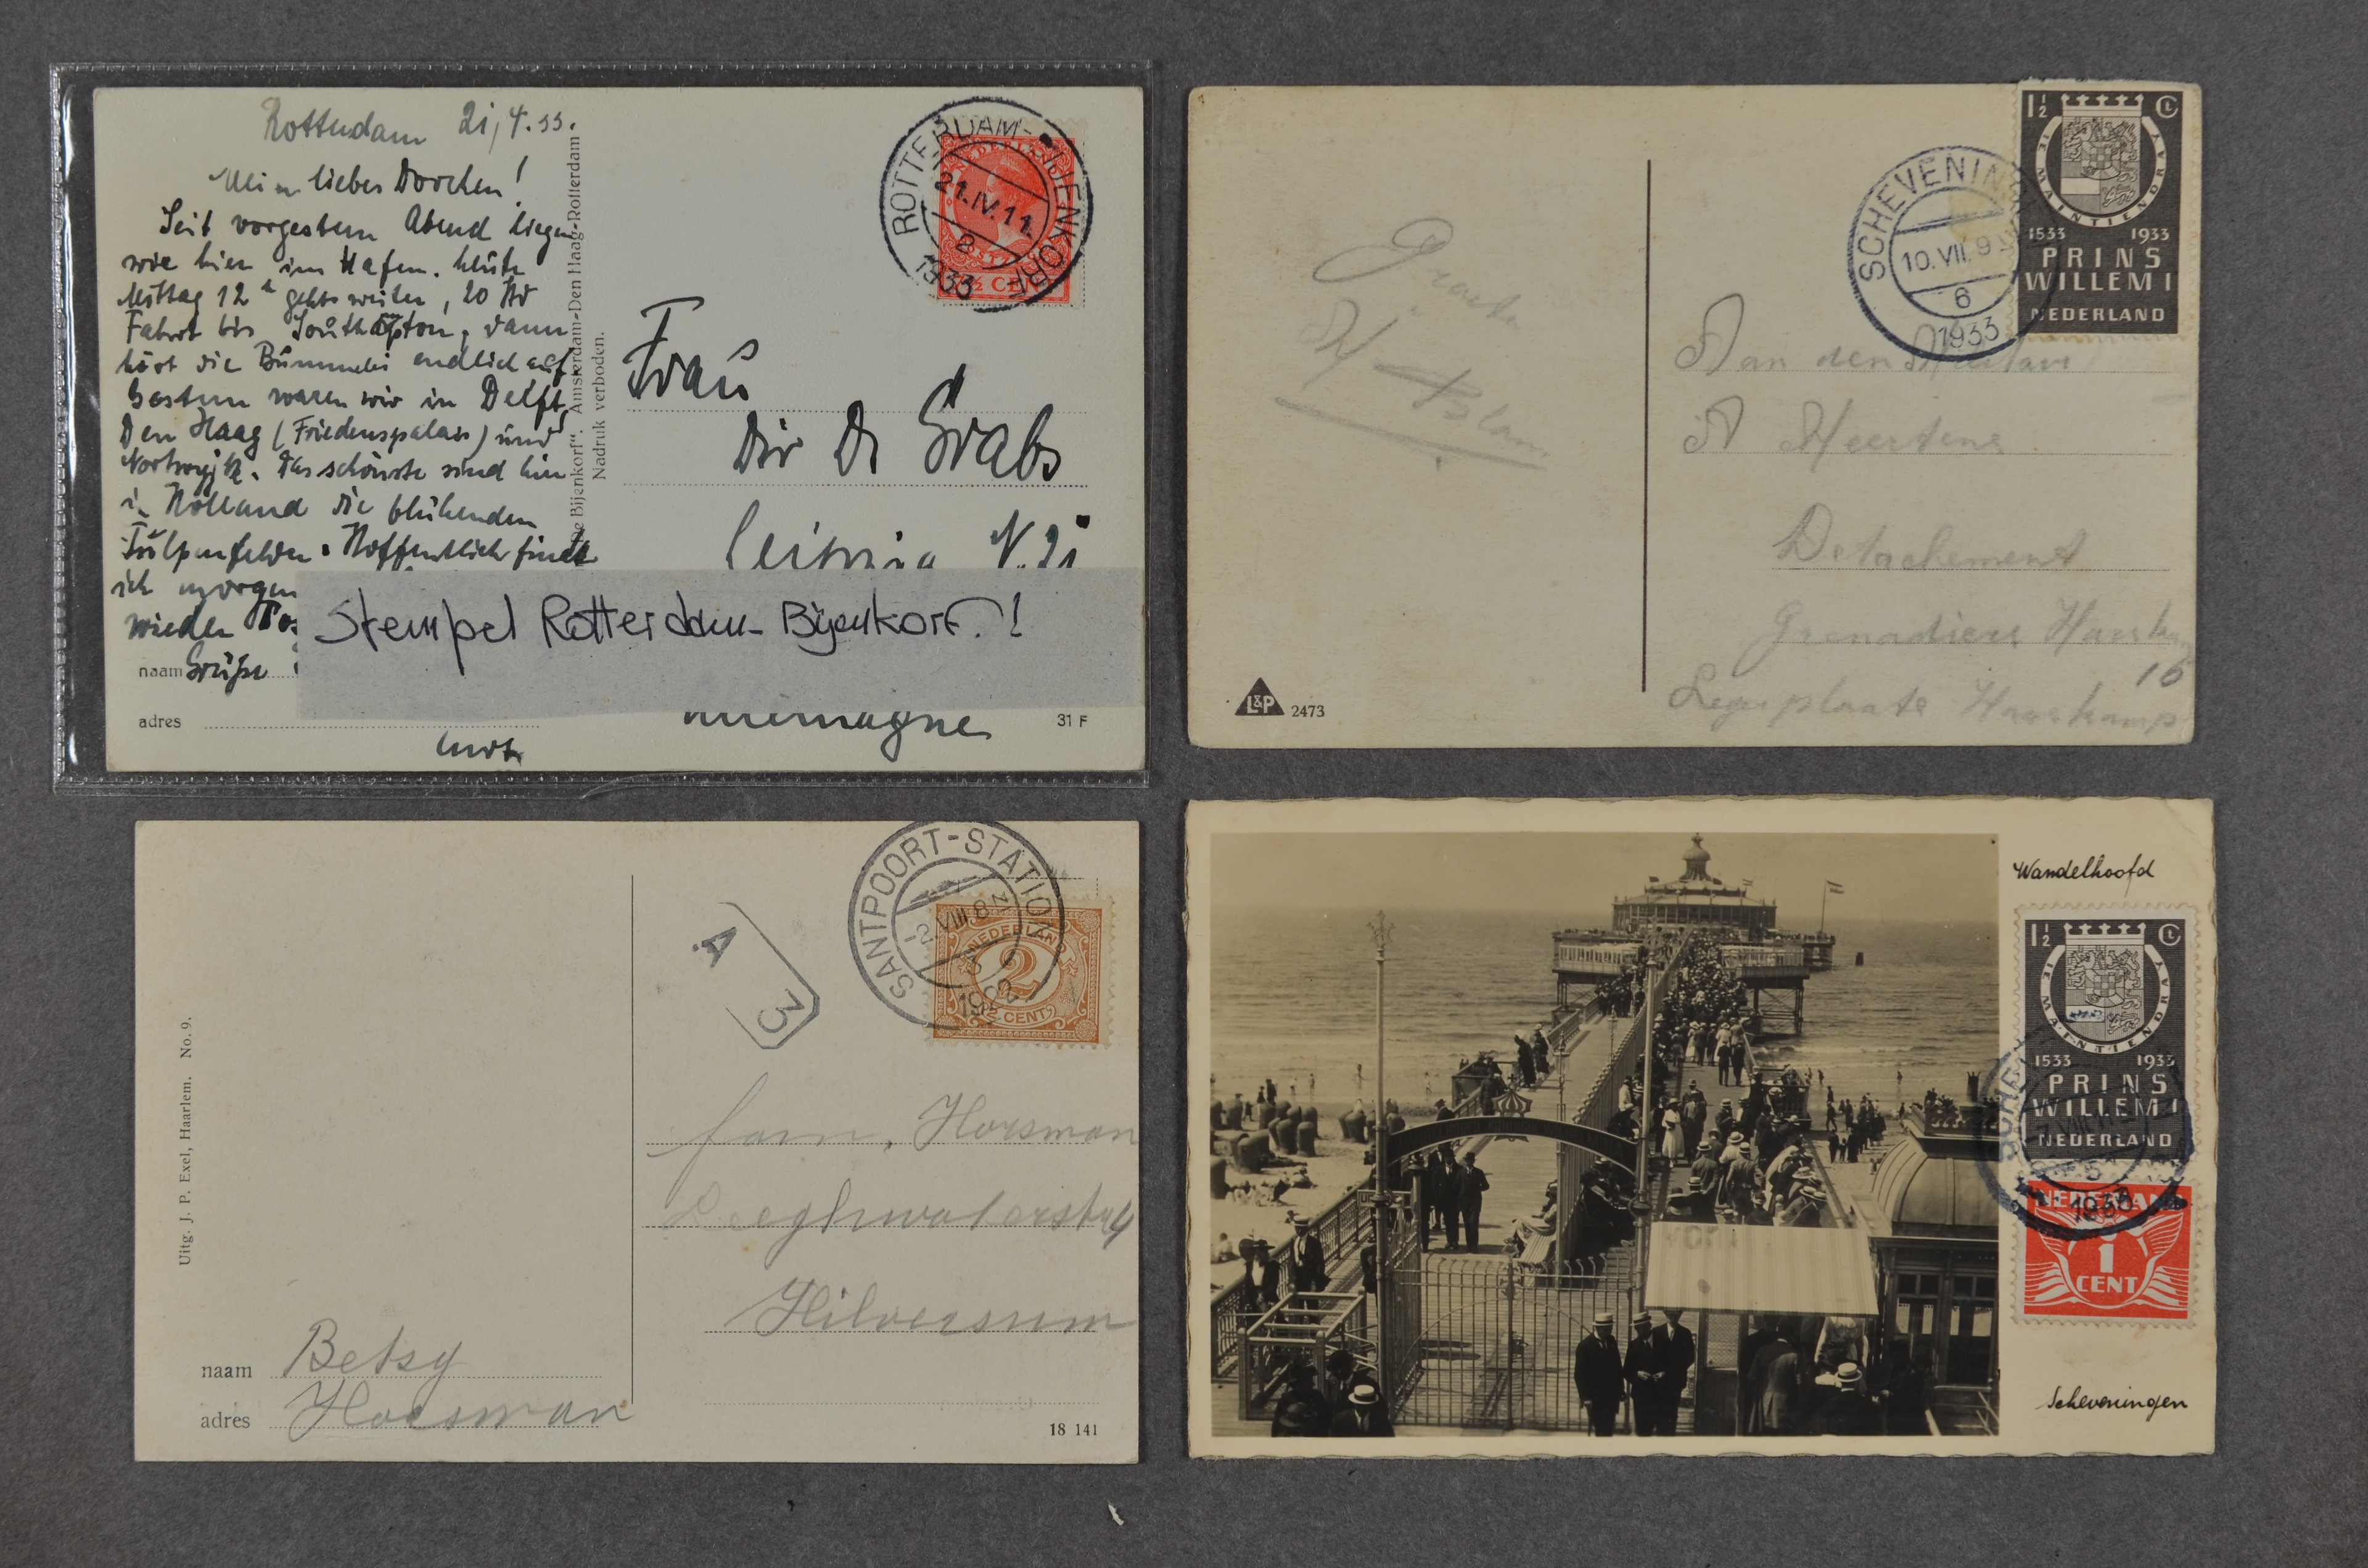 Rotterdam 21,4.33.
Mein liebes Dorchen!
Seit vorgestern Abend liegen
wir hier im Hafen. Heute
Mittag 12 h gehts weiter, 20 Std
Fahrt bis Southampton, dann
hört die Bummelei endlich auf
Gestern waren wir in Delft,
Den Haag (Friedenspalais) und
Das schönste sind hier
in Holland die blühenden
Tulpenfelder. Hoffentlich finde
ich morgen
wieder
naam Grüße
adres
Bijenkorf". Amsterdam-Den Haag-Rotterdam
Nadruk verboden.
ROTTERDAM-BIJENKORF
21.IV.11
2
1933
½ CENT
Frau
Dir Dr Grabs
Leipzig N.21
Stempel Rotterdam-Bijenkorf.!
Allemagne
31 F
SCHEVENINGEN
10.VII.9
6
1933
1½ Ct
JE MAINTIENDRAY
1533 1933
PRINS
WILLEM I
NEDERLAND
Groeten
Aan den
A Meertens
Detachement
Grenadiers Harskamp
16
Legerplaats Harskamp
L&P 2473
SANTPOORT-STATION
-2.VIII.8
3
19
NEDERLAND
2
½ CENT
A
3
Uitg. J. P. Exel, Haarlem. No. 9.
fam. Horsman
Leeghwaterstr 4
Hilversum
naam Betsy
adres Horsman
18 141
Wandelhoofd
1½ Ct
JE MAINTIENDRAY
1533 1933
PRINS
WILLEM I
NEDERLAND
SCHE
5
1933
NEDERLAND
1
CENT
Scheveningen